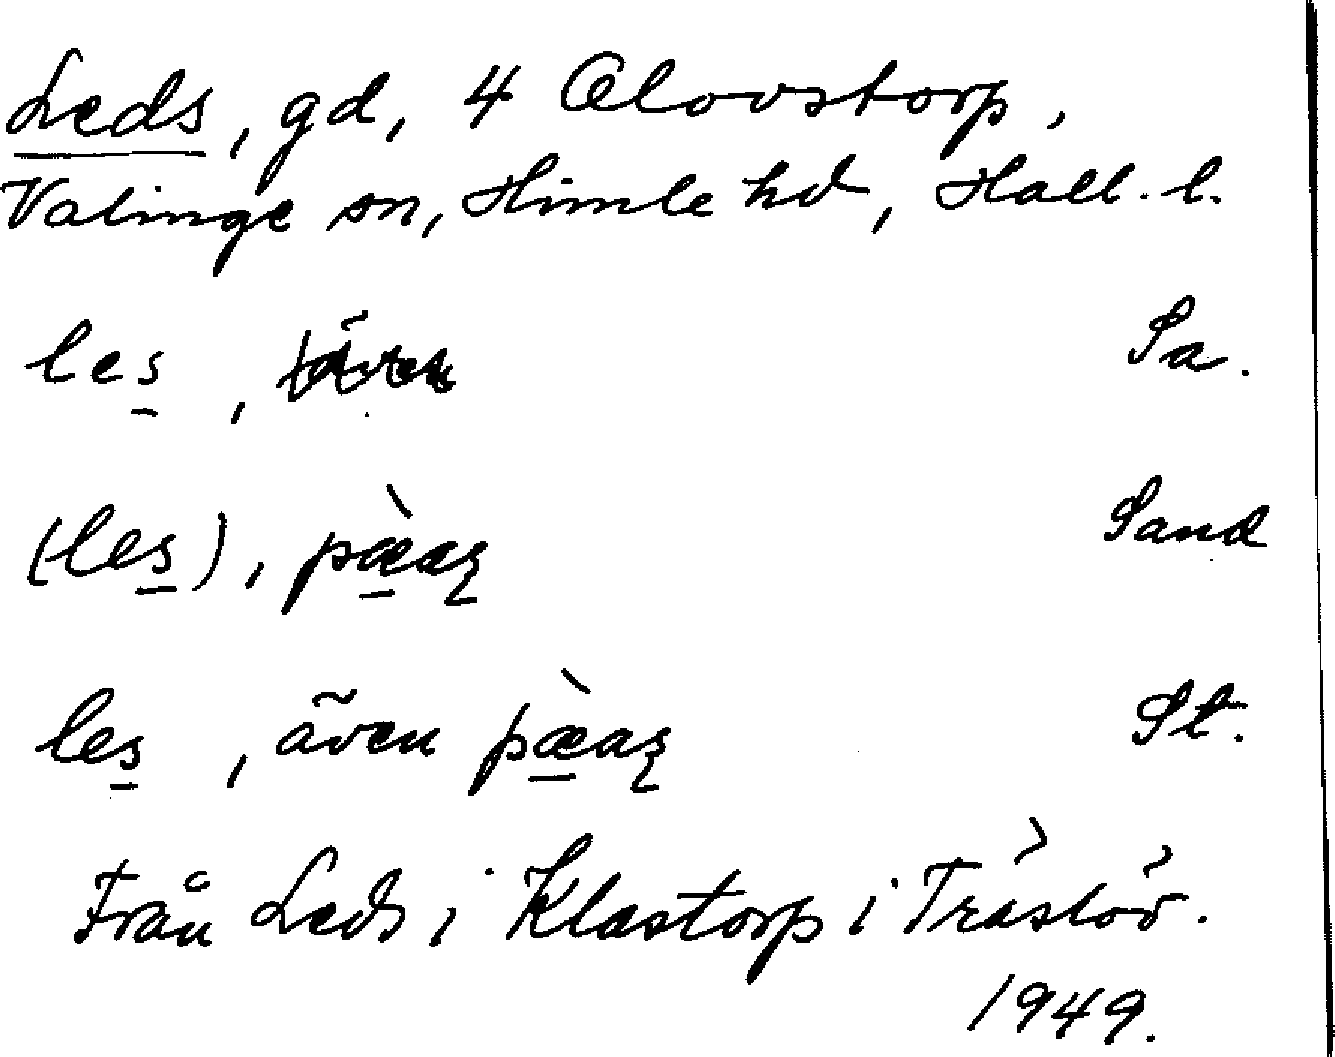 Leds, gd, 4 Alovstorp,
Valinge sn, Himle hd, Hall. l.
les, Sa.
(les), pæ̀aʂ Sand
les, även pæ̀aʂ St.
Från Leds i Klastorp i Träslöv.
1949.